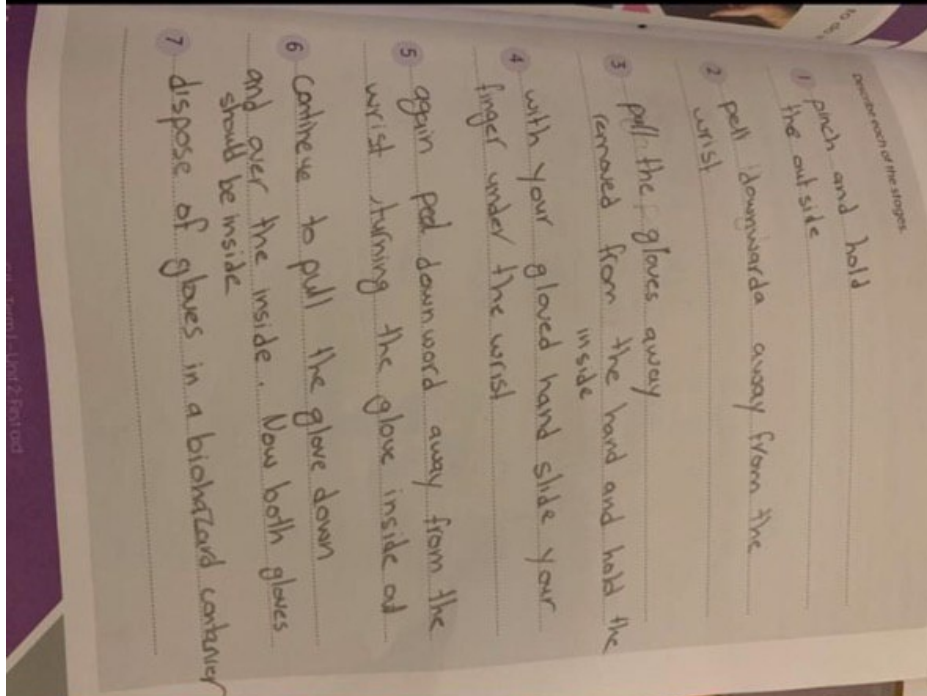 Describe each of the stages.
1 pinch and hold
the outside
2 pell downwarda away from the
wrist
3 pull the gloves away
removed from the hand and hold the
inside
4 with your gloved hand slide your
finger under the wrist
5 again peel downword away from the
wrist, turning the glove inside out
6 contineue to pull the glove down
and over the inside. Now both gloves
should be inside
7 dispose of gloves in a biohazard contanier
Term 1 - Unit 2: First aid